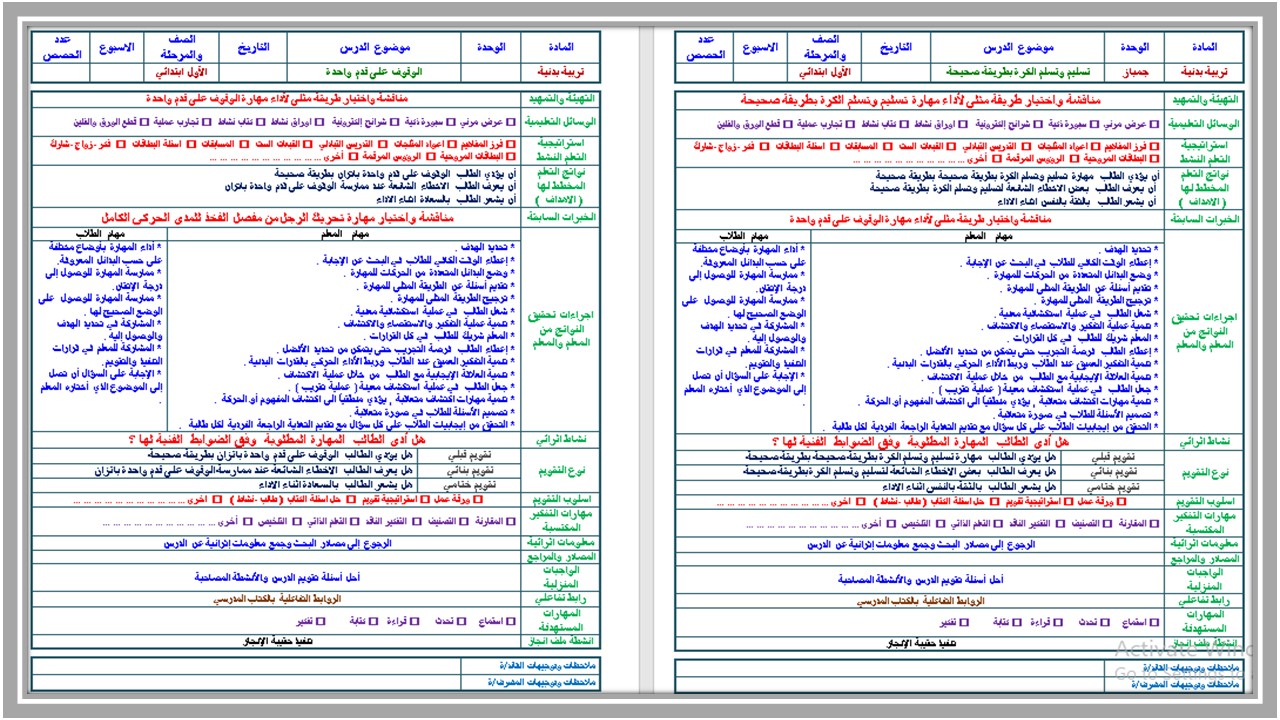 المادة الوحدة موضوع الدرس التاريخ الصف والمرحلة الاسبوع عدد الحصص
تربية بدنية جمباز تسليم وتسلم الكرة بطريقة صحيحة الأول ابتدائي
التهيئة والتمهيد مناقشة واختيار طريقة مثلى لأداء مهارة تسليم وتسلم الكرة بطريقة صحيحة
الوسائل التعليمية □ عرض مرئي □ سبورة ذكية □ شرائح إلكترونية □ اوراق نشاط □ كتاب نشاط □ تجارب عملية □ قطع الورق والفلين
استراتيجية التعلم النشط □ فرز المفاهيم □ اعواد المثلجات □ التدريس التبادلي □ القبعات الست □ المسابقات □ اسئلة البطاقات □ فكر -زواج -شارك
□ البطاقات المروحية □ الرؤوس المرقمة □ أخرى ... ... ... ... ... ... ... ...
نواتج التعلم المخطط لها ( الاهداف )
أن يؤدي الطالب مهارة تسليم وتسلم الكرة بطريقة صحيحة بطريقة صحيحة
أن يعرف الطالب بعض الاخطاء الشائعة لتسليم وتسلم الكرة بطريقة صحيحة
أن يشعر الطالب بالثقة بالنفس اثناء الاداء
الخبرات السابقة مناقشة واختيار طريقة مثلى لأداء مهارة الوقوف على قدم واحدة
اجراءات تحقيق النواتج من المعلم والمعلم
مهام المعلم
* تحديد الهدف .
* إعطاء الوقت الكافي للطلاب في البحث عن الإجابة .
* وضع البدائل المتعددة من الحركات للمهارة .
* تقديم أسئلة عن الطريقة المثلى للمهارة .
* ترجيح الطريقة المثلى للمهارة .
* شغل الطالب في عملية استكشافية معينة .
* تنمية عملية التفكير والاستقصاء والاكتشاف .
* المعلم شريك للطالب في كل القرارات .
* إعطاء الطالب فرصة التجريب حتى يتمكن من تحديد الأفضل .
* تنمية التفكير العميق عند الطلاب وربط الأداء الحركي بالقدرات البدنية .
* تنمية العلاقة الإيجابية مع الطالب من خلال عملية الاكتشاف .
* جعل الطالب في عملية استكشاف معينة ( عملية تقريب )
* تنمية مهارات اكتشاف متعاقبة , يؤدي منطقياً الى اكتشاف المفهوم أو الحركة .
* تصميم الأسئلة للطلاب في صورة متعاقبة .
* التحقق من إيجابيات الطلاب على كل سؤال مع تقديم التغذية الراجعة الفردية لكل طالبة .
مهام الطلاب
* أداء المهارة بأوضاع مختلفة
على حسب البدائل المعروفة.
* ممارسة المهارة للوصول إلى
درجة الإتقان.
* ممارسة المهارة للوصول على
الوضع الصحيح لها .
* المشاركة في تحديد الهدف
والوصول إليه .
* المشاركة للمعلم في قرارات
التنفيذ والتقويم.
* الإجابة على السؤال أن تصل
إلى الموضوع الذي أختاره المعلم
.
نشاط اثرائي هل أدى الطالب المهارة المطلوبة وفق الضوابط الفنية لها ؟
نوع التقويم
تقويم قبلي هل يؤدي الطالب مهارة تسليم وتسلم الكرة بطريقة صحيحة بطريقة صحيحة
تقويم بنائي هل يعرف الطالب بعض الاخطاء الشائعة لتسليم وتسلم الكرة بطريقة صحيحة
تقويم ختامي هل يشعر الطالب بالثقة بالنفس اثناء الاداء
اسلوب التقويم □ ورقة عمل □ استراتيجية تقويم □ حل اسئلة الكتاب ( طالب -نشاط ) □ أخرى ... ... ... ... ... ... ... ...
مهارات التفكير المكتسبة □ المقارنة □ التصنيف □ التفكير الناقد □ التعلم الذاتي □ التلخيص □ أخرى ... ... ... ... ... ... ... ...
معلومات اثرائية الرجوع إلى مصادر البحث وجمع معلومات إثرائية عن الدرس
المصادر والمراجع
الواجبات المنزلية أحل أسئلة تقويم الدرس والأنشطة المصاحبة
رابط تفاعلي الروابط التفاعلية بالكتاب المدرسي
المهارات المستهدفة □ استماع □ تحدث □ قراءة □ كتابة □ تفكير
انشطة ملف انجاز تنفيذ حقيبة الإنجاز
ملاحظات وتوجيهات القائد/ة
ملاحظات وتوجيهات المشرف/ة
Activate Wind
Go to Settings to
المادة الوحدة موضوع الدرس التاريخ الصف والمرحلة الاسبوع عدد الحصص
تربية بدنية الوقوف على قدم واحدة الأول ابتدائي
التهيئة والتمهيد مناقشة واختيار طريقة مثلى لأداء مهارة الوقوف على قدم واحدة
الوسائل التعليمية □ عرض مرئي □ سبورة ذكية □ شرائح إلكترونية □ اوراق نشاط □ كتاب نشاط □ تجارب عملية □ قطع الورق والفلين
استراتيجية التعلم النشط □ فرز المفاهيم □ اعواد المثلجات □ التدريس التبادلي □ القبعات الست □ المسابقات □ اسئلة البطاقات □ فكر -زواج -شارك
□ البطاقات المروحية □ الرؤوس المرقمة □ أخرى ... ... ... ... ... ... ... ...
نواتج التعلم المخطط لها ( الاهداف )
أن يؤدي الطالب الوقوف على قدم واحدة باتزان بطريقة صحيحة
أن يعرف الطالب الاخطاء الشائعة عند ممارسة الوقوف على قدم واحدة باتزان
أن يشعر الطالب بالسعادة اثناء الاداء
الخبرات السابقة مناقشة واختيار مهارة تحريك الرجل من مفصل الفخذ للمدى الحركي الكامل
اجراءات تحقيق النواتج من المعلم والمعلم
مهام المعلم
* تحديد الهدف .
* إعطاء الوقت الكافي للطلاب في البحث عن الإجابة .
* وضع البدائل المتعددة من الحركات للمهارة .
* تقديم أسئلة عن الطريقة المثلى للمهارة .
* ترجيح الطريقة المثلى للمهارة .
* شغل الطالب في عملية استكشافية معينة .
* تنمية عملية التفكير والاستقصاء والاكتشاف .
* المعلم شريك للطالب في كل القرارات .
* إعطاء الطالب فرصة التجريب حتى يتمكن من تحديد الأفضل .
* تنمية التفكير العميق عند الطلاب وربط الأداء الحركي بالقدرات البدنية .
* تنمية العلاقة الإيجابية مع الطالب من خلال عملية الاكتشاف .
* جعل الطالب في عملية استكشاف معينة ( عملية تقريب )
* تنمية مهارات اكتشاف متعاقبة , يؤدي منطقياً الى اكتشاف المفهوم أو الحركة .
* تصميم الأسئلة للطلاب في صورة متعاقبة .
* التحقق من إيجابيات الطلاب على كل سؤال مع تقديم التغذية الراجعة الفردية لكل طالبة .
مهام الطلاب
* أداء المهارة بأوضاع مختلفة
على حسب البدائل المعروفة.
* ممارسة المهارة للوصول إلى
درجة الإتقان.
* ممارسة المهارة للوصول على
الوضع الصحيح لها .
* المشاركة في تحديد الهدف
والوصول إليه .
* المشاركة للمعلم في قرارات
التنفيذ والتقويم.
* الإجابة على السؤال أن تصل
إلى الموضوع الذي أختاره المعلم
.
نشاط اثرائي هل أدى الطالب المهارة المطلوبة وفق الضوابط الفنية لها ؟
نوع التقويم
تقويم قبلي هل يؤدي الطالب الوقوف على قدم واحدة باتزان بطريقة صحيحة
تقويم بنائي هل يعرف الطالب الاخطاء الشائعة عند ممارسة الوقوف على قدم واحدة باتزان
تقويم ختامي هل يشعر الطالب بالسعادة اثناء الاداء
اسلوب التقويم □ ورقة عمل □ استراتيجية تقويم □ حل اسئلة الكتاب ( طالب -نشاط ) □ أخرى ... ... ... ... ... ... ... ...
مهارات التفكير المكتسبة □ المقارنة □ التصنيف □ التفكير الناقد □ التعلم الذاتي □ التلخيص □ أخرى ... ... ... ... ... ... ... ...
معلومات اثرائية الرجوع إلى مصادر البحث وجمع معلومات إثرائية عن الدرس
المصادر والمراجع
الواجبات المنزلية أحل أسئلة تقويم الدرس والأنشطة المصاحبة
رابط تفاعلي الروابط التفاعلية بالكتاب المدرسي
المهارات المستهدفة □ استماع □ تحدث □ قراءة □ كتابة □ تفكير
انشطة ملف انجاز تنفيذ حقيبة الإنجاز
ملاحظات وتوجيهات القائد/ة
ملاحظات وتوجيهات المشرف/ة